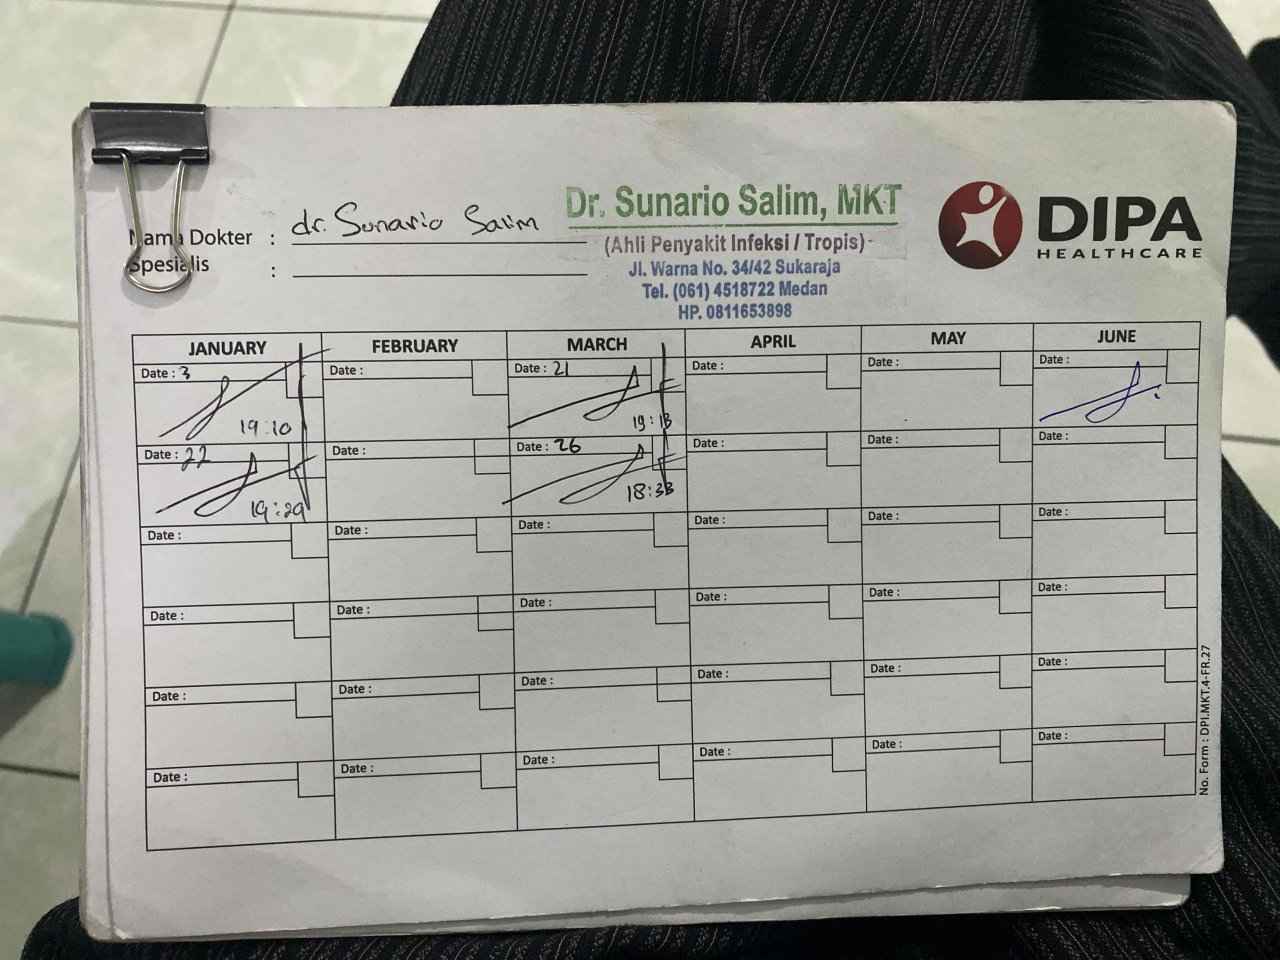 Nama Dokter : dr. Sunario Salim
Spesialis :
Dr. Sunario Salim, MKT
(Ahli Penyakit Infeksi / Tropis)
Jl. Warna No. 34/42 Sukaraja
Tel. (061) 4518722 Medan
HP. 0811653898
DIPA
HEALTHCARE
JANUARY FEBRUARY MARCH APRIL MAY JUNE
Date : 3 Date : Date : 21 Date : Date : Date :
19:10 19:13
Date : 22 Date : Date : 26 Date : Date : Date :
19:29 18:33
Date : Date : Date : Date : Date : Date :
Date : Date : Date : Date : Date : Date :
Date : Date : Date : Date : Date : Date :
Date : Date : Date : Date : Date : Date :
No. Form : DPI.MKT.4-FR.27